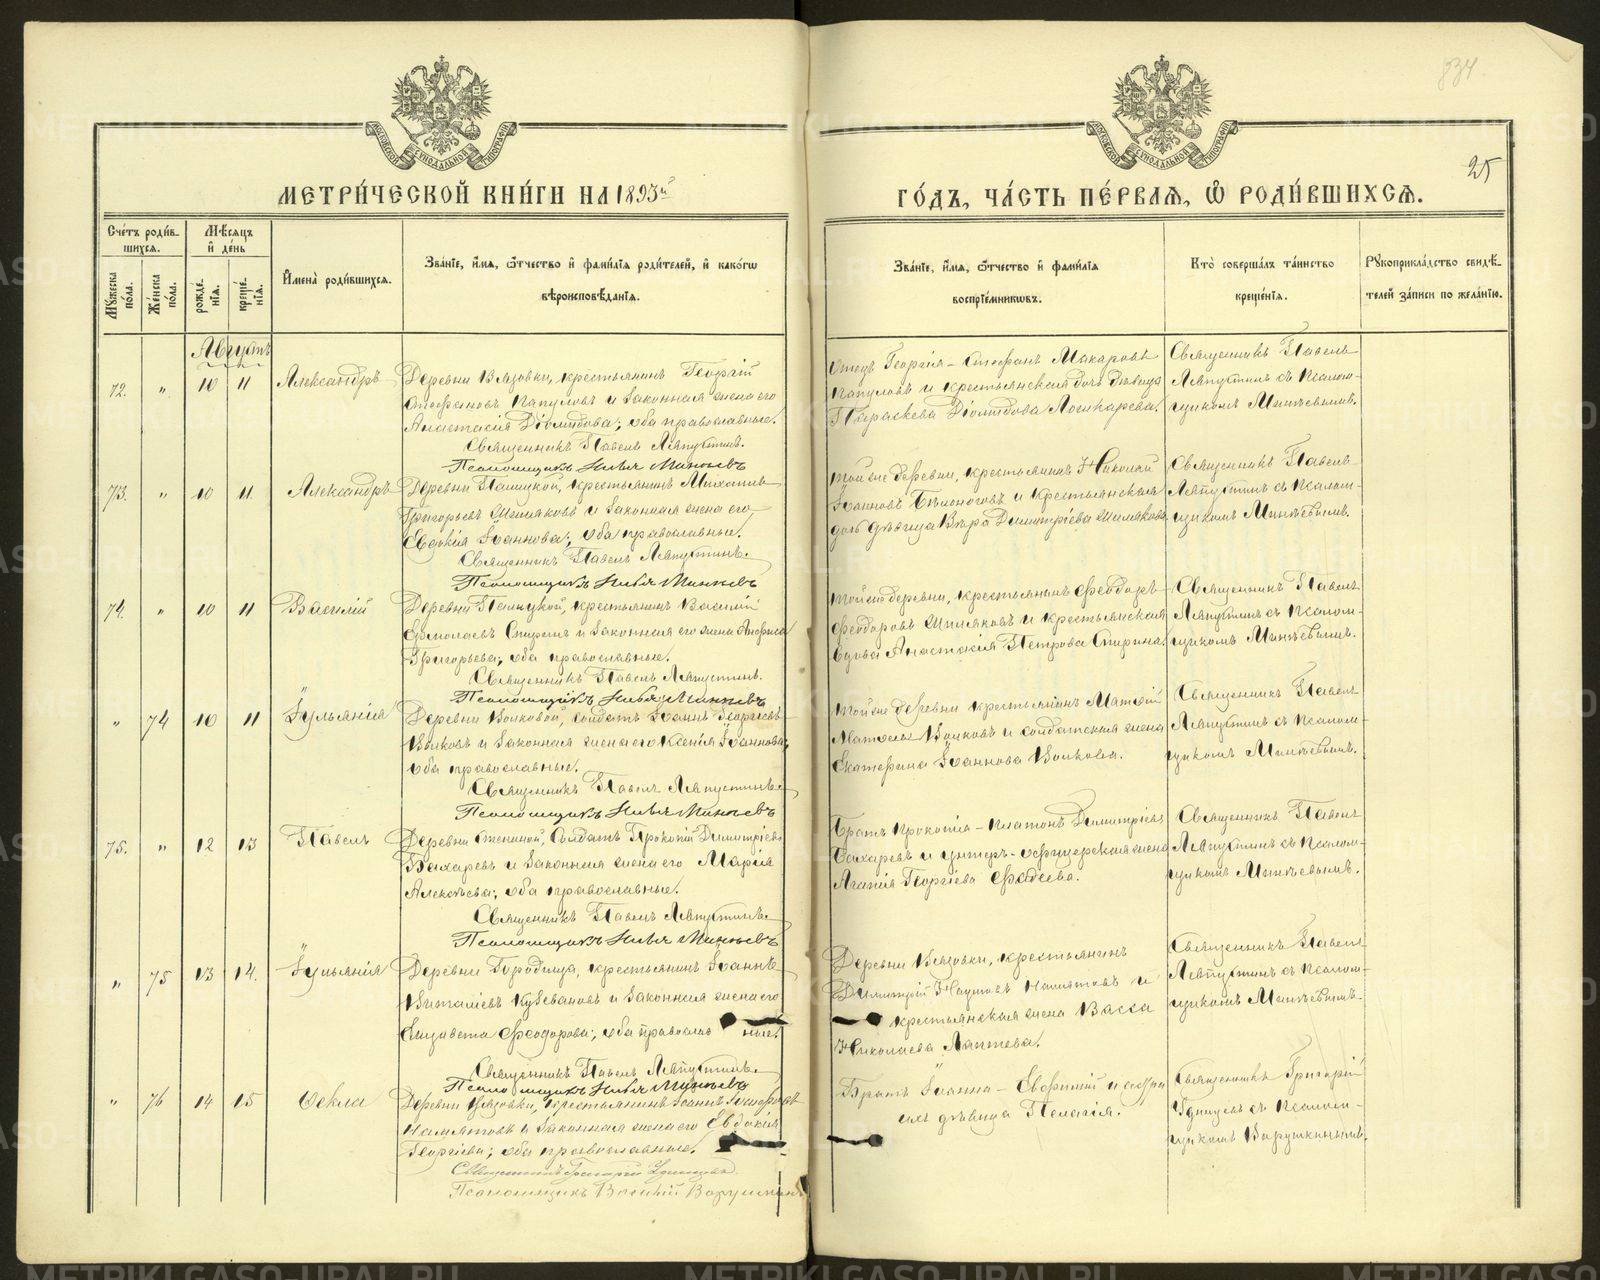 834
25
МЕТРИ́ЧЕСКОЙ КНИ́ГИ НА 1893й
ГО́ДЪ, ЧА́СТЬ ПЕ́РВАЯ, Ѡ РОДИ́ВШИХСЯ.
Сче́тъ роди́вшихся.
Мѣ́сяцъ и де́нь
Имена̀ роди́вшихся.
Зва́нїе, и́мя, ѻ́тчество и фами́лїя роди́телей, и како́гѡ вѣроисповѣ́данїя.
Зва́нїе, и́мя, ѻ́тчество и фами́лїя воспрїе́мникѡвъ.
Кто̀ соверша́лъ та́инство креще́нїя.
Рукоприкла́дство свидѣ́телей за́писи по жела́нїю.
Мужеска по́ла.
Же́нска по́ла.
рожде́нїя.
креще́нїя.
Августъ
72. " 10 11 Александръ
Деревни Вязовки, крестьянинъ Георгій
Стефановъ Папуловъ и законная жена его
Анастасія Діомидова; оба православные.
Священникъ Павелъ Ляпустинъ.
Псаломщикъ Илья Минѣевъ
Отецъ Георгія – Стефанъ Макаровъ
Папуловъ и крестьянская дочь девица
Параскева Діомидова
Священникъ Павелъ
Ляпустинъ съ псалом-
щикомъ Минѣевымъ.
73. " 10 11 Александръ
крестьянинъ Михаилъ
Григорьевъ Шиляковъ и законная жена его
Евдокія Іоаннова; оба православные.
Священникъ Павелъ Ляпустинъ.
Псаломщикъ Илья Минѣевъ
Той же деревни, крестьянинъ Николай
Іоанновъ Бѣлоноговъ и крестьянская
дочь дѣвица Вѣра Димитріева Шилякова
Священникъ Павелъ
Ляпустинъ съ псалом-
щикомъ Минѣевымъ.
74. " 10 11 Василій
крестьянинъ Василій
Ермолаевъ Спиринъ и законная его жена Анфиса
Григорьева; оба православные.
Священникъ Павелъ Ляпустинъ.
Псаломщикъ Илья Минѣевъ
Той же деревни, крестьянинъ Феодоръ
Феодоровъ Шиляковъ и крестьянская
вдова Анастасія Петрова Спирина.
Священникъ Павелъ
Ляпустинъ съ псалом-
щикомъ Минѣевымъ.
" 74 10 11 Іульянія
Деревни Волковой, солдатъ Іоаннъ Георгіевъ
Волковъ и законная жена его Ксенія Іоаннова;
оба православные.
Священникъ Павелъ Ляпустинъ
Псаломщикъ Илья Минѣевъ
Той же деревни крестьянинъ Матвій
Волковъ и солдатская жена
Екатерина Іоаннова Волкова.
Священникъ Павелъ
Ляпустинъ съ псалом-
щикомъ Минѣевымъ.
75. " 12 13 Павелъ
солдатъ Прокопій Димитріевъ
Бахаревъ и законная жена его Марія
Алексѣева; оба православные.
Священникъ Павелъ Ляпустинъ
Псаломщикъ Илья Минѣевъ
Братъ Прокопія – Платонъ Димитріевъ
Бахаревъ и унтеръ-офицерская жена
Агапія Георгіева Фадѣева.
Священникъ Павелъ
Ляпустинъ съ псалом-
щикомъ Минѣевымъ.
" 75 13 14. Іульянія
Деревни Городища, крестьянинъ Іоаннъ
Виталіевъ Кузевановъ и законная жена его
Елизавета Феодорова; оба православные.
Священникъ Павелъ Ляпустинъ
Псаломщикъ Илья Минѣевъ
Деревни Вязовки, крестьянинъ
Димитрій Наумовъ Намятовъ и
крестьянская жена Васса
Николаева Лаптева.
Священникъ Павелъ
Ляпустинъ съ псалом-
щикомъ Минѣевымъ.
" 76 14 15 Ѳекла
Деревни Вязовки, крестьянинъ Іоаннъ
Намятовъ и законная жена его Евдокія
Георгіева; оба православные.
Священникъ Григорій Удинцевъ
Псаломщикъ Василій Варушкинъ
Братъ Іоанна – Евфимій и сестра
ихъ дѣвица Пелагія.
Священникъ Григорій
Удинцевъ съ псалом-
щикомъ Варушкинымъ.
METRIKI.GASO-URAL.RU